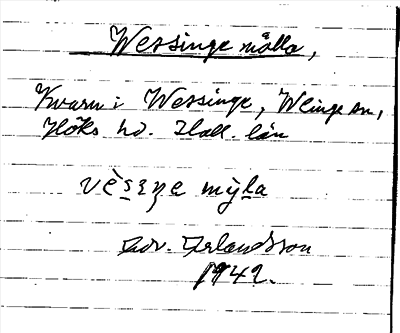 Wessinge mölla,
Kvarn i Wessinge, Weinge sn,
Höks hd. Hall. län
vès𝑖ŋe mỳla
Edv. Erlandsson
1942.